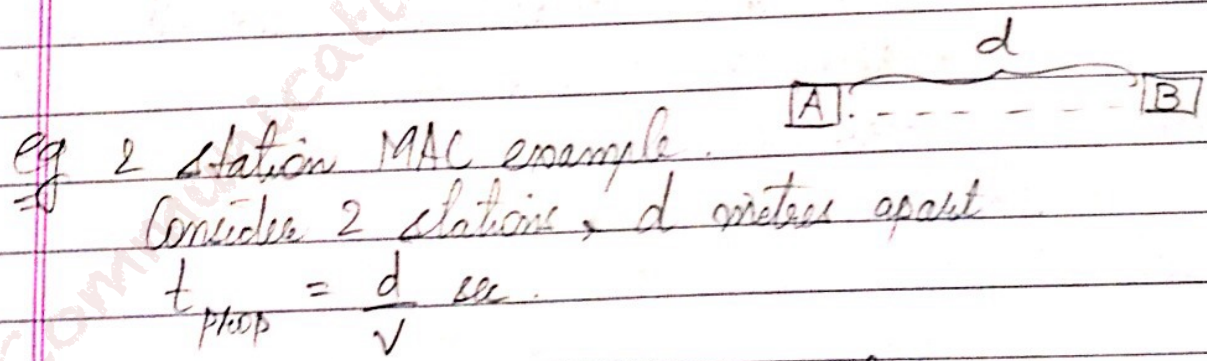 d
A B
eg 2 station MAC example.
Consider 2 stations, d metres apart
t_prop = d/v sec.